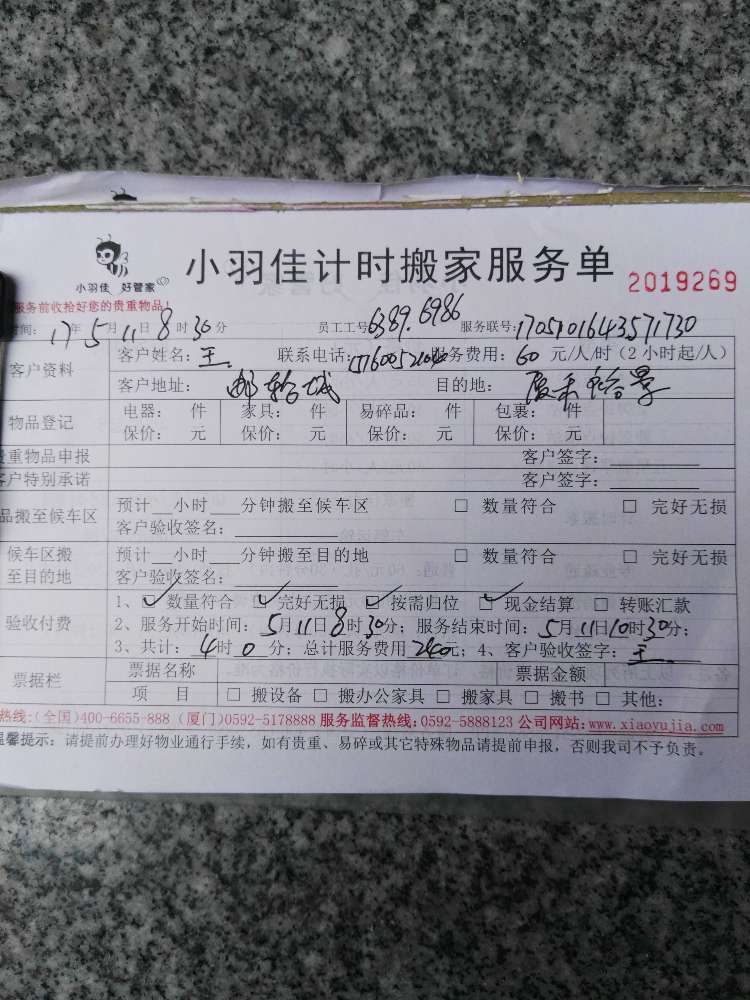 小羽佳 好管家
小羽佳计时搬家服务单
2019269
服务前收拾好您的贵重物品!
时间: 17年 5月 11日 8时 30分 员工工号: 6389.6986 服务联号: 1705101643571730
客户资料
客户姓名: 王. 联系电话: 服务费用: 60 元/人/时 (2小时起/人)
客户地址: 邮轮城 目的地: 夏禾裕景
物品登记
电器: 件 家具: 件 易碎品: 件 包裹: 件
保价: 元 保价: 元 保价: 元 保价: 元
贵重物品申报 客户签字:
客户特别承诺 客户签字:
品搬至候车区
预计__小时___分钟搬至候车区 □ 数量符合 □ 完好无损
客户验收签名:
候车区搬
至目的地
预计__小时___分钟搬至目的地 □ 数量符合 □ 完好无损
客户验收签名:
验收付费
1、☑ 数量符合 ☑ 完好无损 ☑ 按需归位 ☑ 现金结算 □ 转账汇款
2、服务开始时间: 5月11日8时30分; 服务结束时间: 5月11日10时30分;
3、共计: 4时 0 分; 总计服务费用240元; 4、客户验收签字: 王.
票据栏
票据名称 票据金额
项 目 □ 搬设备 □ 搬办公家具 □ 搬家具 □ 搬书 □ 其他:
热线:(全国)400-6655-888 (厦门)0592-5178888 服务监督热线:0592-5888123 公司网站:www.xiaoyujia.com
温馨提示: 请提前办理好物业通行手续, 如有贵重、易碎或其它特殊物品请提前申报, 否则我司不予负责。